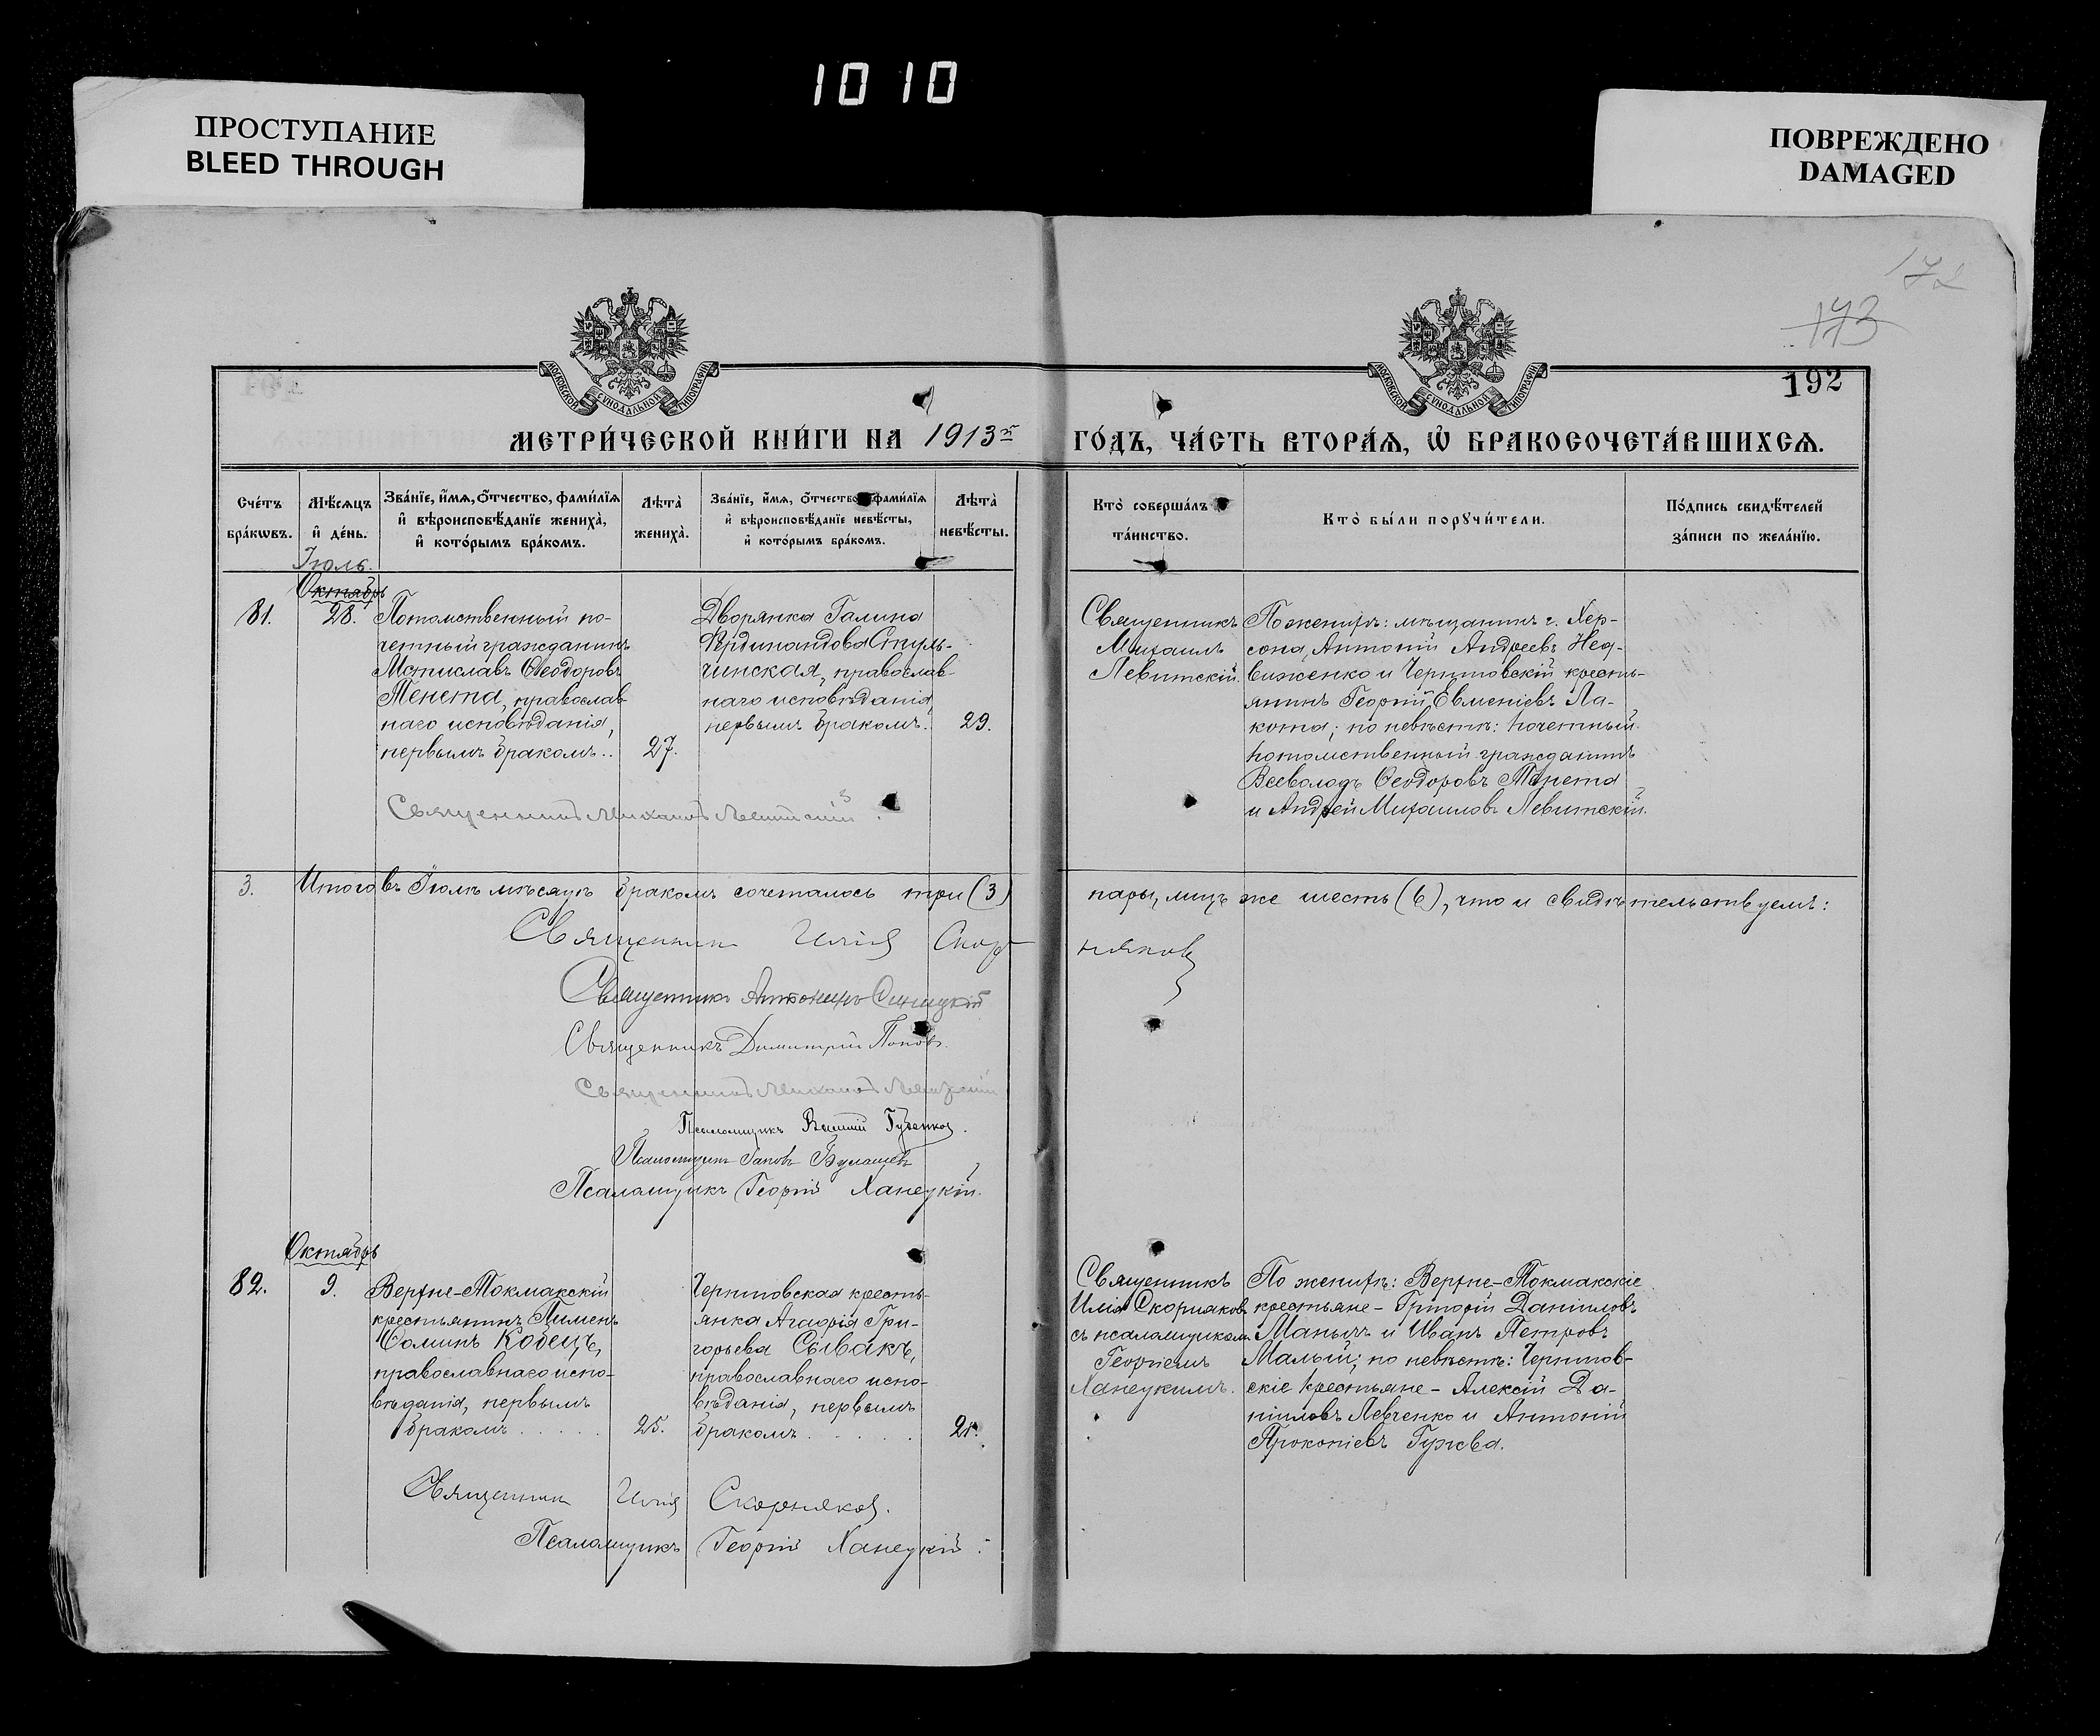 1010
ПРОСТУПАНИЕ
BLEED THROUGH
ПОВРЕЖДЕНО
DAMAGED
172
173
192
МОСКОВСКОЙ СУНОДАЛЬНОЙ ТИПОГРАФІИ
МОСКОВСКОЙ СУНОДАЛЬНОЙ ТИПОГРАФІИ
МЕТРИ́ЧЕСКОЙ КНИ́ГИ НА 1913й ГО́ДЪ, ЧА́СТЬ ВТОРА́Ѧ, Ѽ БРАКОСОЧЕТА́ВШИХСѦ.
Сче́тъ бра́кѡвъ.
Мѣ́сѧцъ и҆ де́нь.
Зва́нїе, и҆́мѧ, ѻ҆́тчество, фами́лїѧ
и҆ вѣроисповѣ́данїе жениха̀,
и҆ кото́рымъ бра́комъ.
Лѣ́та̀ жениха̀.
Зва́нїе, и҆́мѧ, ѻ҆́тчество, фами́лїѧ
и҆ вѣроисповѣ́данїе невѣ́сты,
и҆ кото́рымъ бра́комъ.
Лѣ́та̀ невѣ́сты.
Кто̀ соверша́лъ та́инство.
Кто̀ бы́ли порꙋчи́тели.
По́дпись свидѣ́телей
за́писи по жела́нїю.
Іюль.
Октябрь
81.
28.
Потомственный по-
четный гражданинъ
Мстиславъ Ѳеодоровъ
Тенета, православ-
наго исповѣданія,
первымъ бракомъ..
27.
Дворянка Галина
Фердинандова Стуль-
чинская, православ-
наго исповѣданія,
первымъ бракомъ.
29.
Священникъ
Михаилъ
Левитскій.
По женихѣ: мѣщанинъ г. Хер-
сона, Антоній Андреевъ Нед-
виженко и Черниговскій кресть-
янинъ Георгій Евменіевъ Ла-
кота; по невѣстѣ: почетный
потомственный гражданинъ
Всеволодъ Ѳеодоровъ Тенета
и Андрей Михаиловъ Левитскій.
Священникъ Михаилъ Левитскій
3. Итого въ Іюлѣ мѣсяцѣ бракомъ сочеталось три (3) пары, лицъ же шесть (6), что и свидѣтельствуемъ:
Священник Илія Скорняков
Священникъ Синицкій
Священникъ Димитрій Попов.
Священникъ Михаилъ Левитскій
Псаломщикъ Губенков.
Псаломщикъ
Псаломщикъ Георгій Ханецкій.
Октябрь
82.
9.
Верхне-Токмакскій
крестьянинъ Пименъ
Ѳоминъ Кобецъ,
православнаго испо-
вѣданія, первымъ
бракомъ . . . . .
25.
Черниговская кресть-
янка Агафія Гри-
горьева Сывакъ,
православнаго испо-
вѣданія, первымъ
бракомъ . . . . .
21.
Священникъ
Илія Скорняковъ
съ псаломщикомъ
Георгіемъ
Ханецкимъ.
По женихѣ: Верхне-Токмакскіе
крестьяне - Григорій Даніиловъ
Манычъ и Иванъ Петровъ
Малый; по невѣстѣ: Чернигов-
скіе крестьяне - Алексій Да-
ніиловъ Левченко и Антоній
Прокопіевъ Гужва.
Священник Илія Скорняков.
Псаломщикъ Георгій Ханецкій.